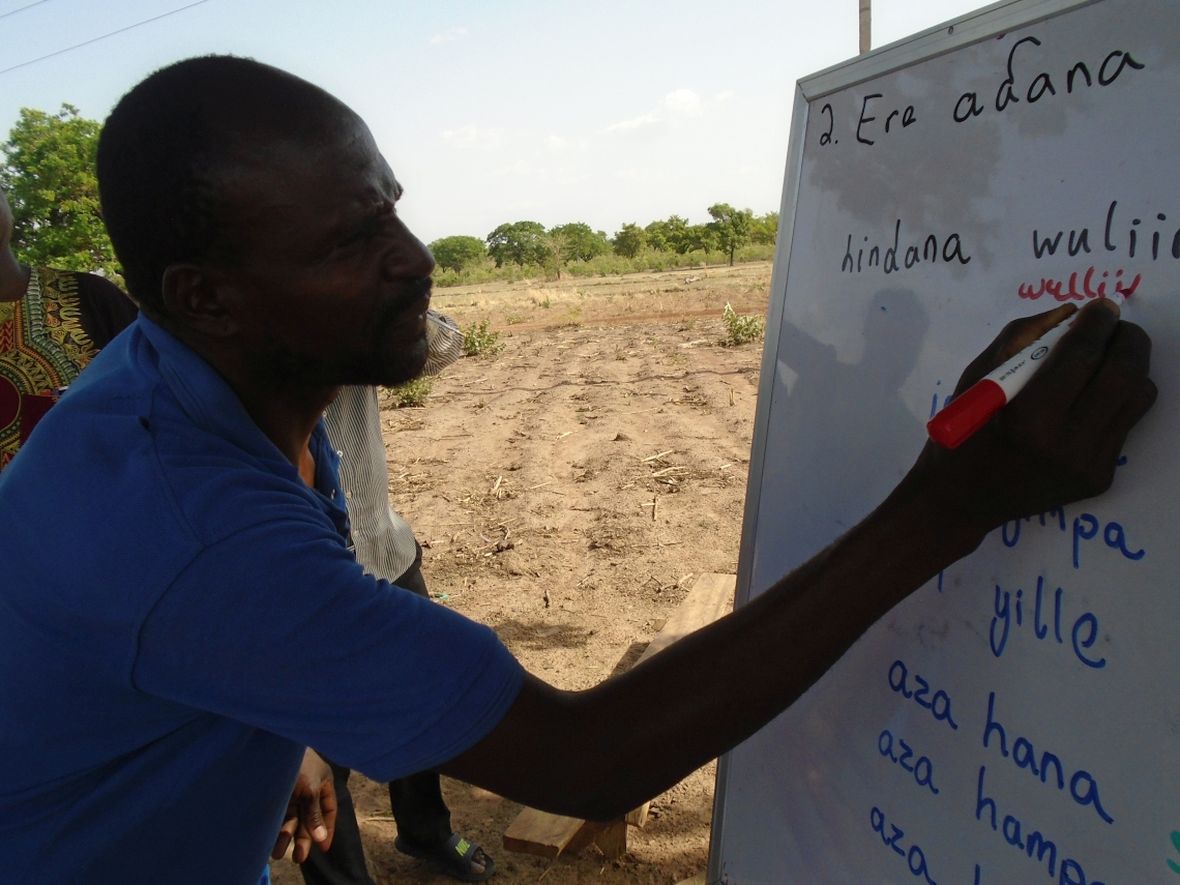 2. Ere aɗana
hindana wuliii
wullii
yille
aza hana
aza hampa
aza